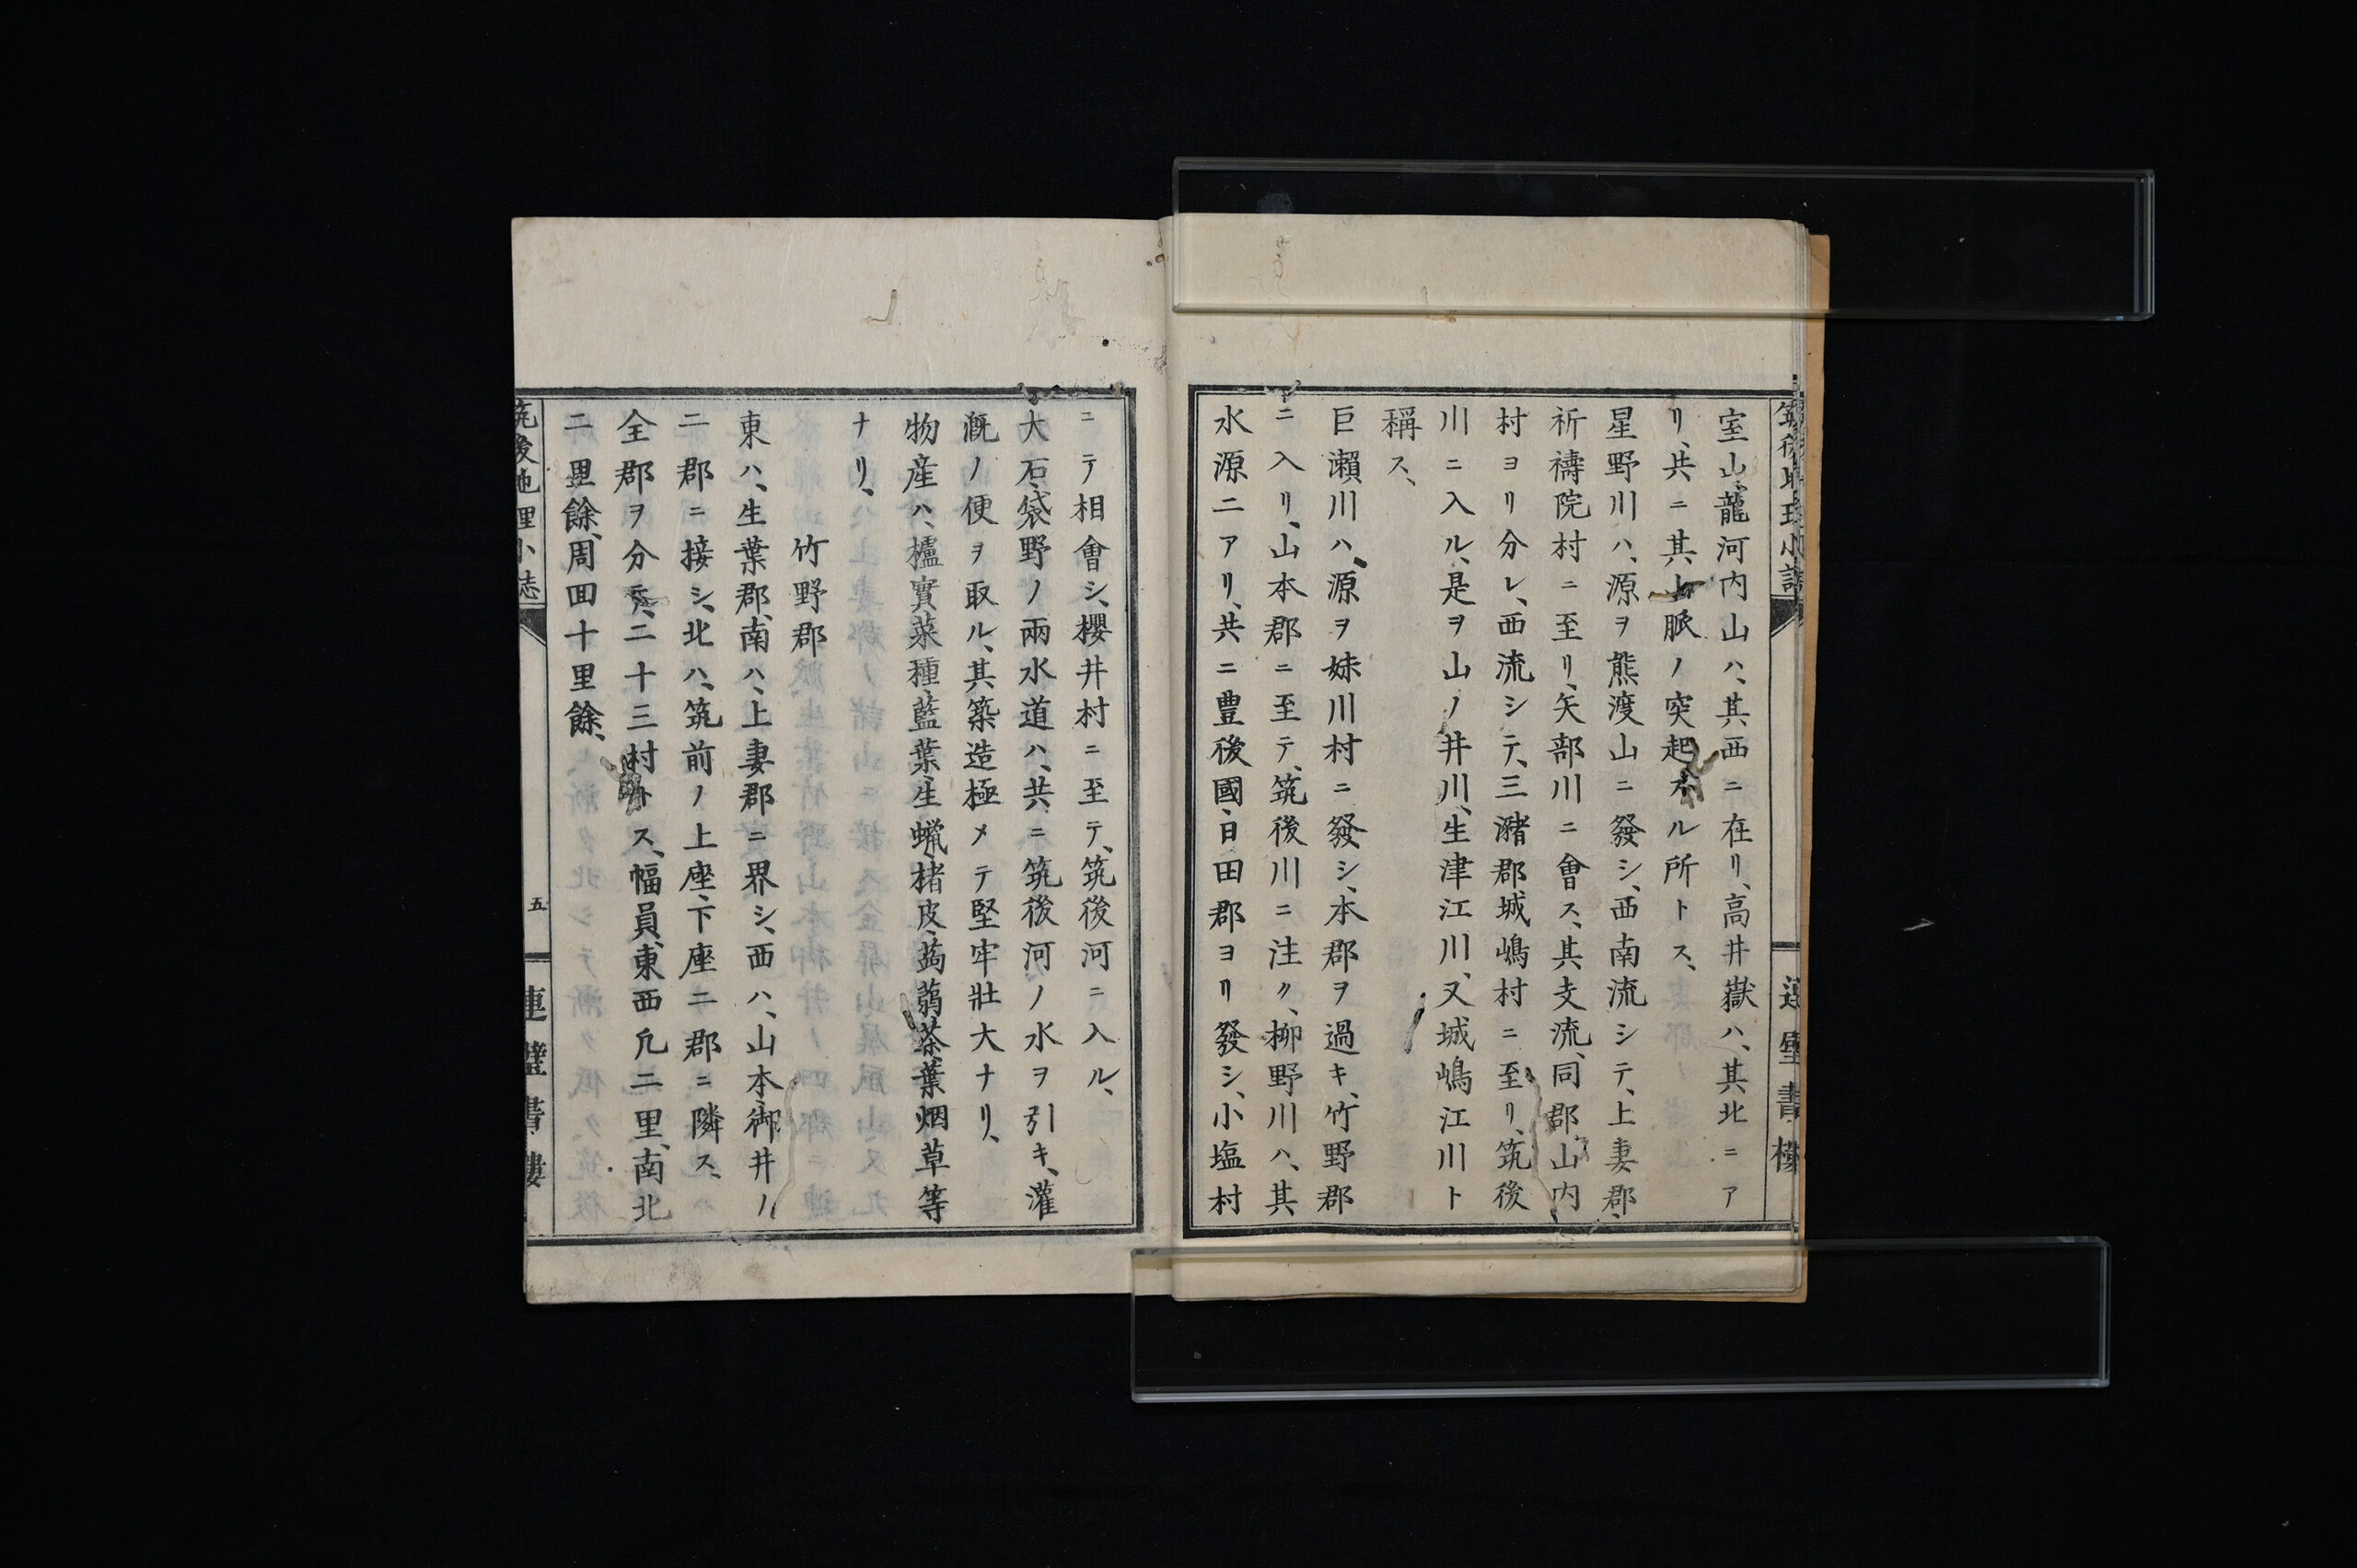 室山、龍河内山ハ、其西ニ在リ、高井嶽ハ、其北ニア
リ、共ニ其山脈ノ突起スル所トス、
星野川ハ、源ヲ熊渡山ニ發シ、西南流シテ、上妻郡、
祈禱院村ニ至リ、矢部川ニ會ス、其支流、同郡山内
村ヨリ分レ、西流シテ、三瀦郡城嶋村ニ至リ、筑後
川ニ入ル、是ヲ山ノ井川、生津江川、又城嶋江川ト
稱ス、
巨瀬川ハ、源ヲ妹川村ニ發シ、本郡ヲ過キ、竹野郡
ニ入リ、山本郡ニ至テ、筑後川ニ注ク、柳野川ハ、其
水源ニアリ、共ニ豊後國、日田郡ヨリ發シ、小塩村
ニテ相會シ、櫻井村ニ至テ、筑後河ニ入ル、
大石、袋野ノ兩水道ハ、共ニ筑後河ノ水ヲ引キ、灌
漑ノ便ヲ取ル、其築造極メテ堅牢壯大ナリ、
物産ハ、櫨實、菜種、藍葉、生蝋、楮皮、蒟蒻、茶、葉烟草等
ナリ、
竹野郡
東ハ、生葉郡、南ハ、上妻郡ニ界シ、西ハ、山本、御井ノ
二郡ニ接シ、北ハ、筑前ノ上座、下座二郡ニ隣ス、
全郡ヲ分テ、二十三村トス、幅員、東西凡二里、南北
二里餘、周囬十里餘、
筑後地理小誌
五
連璧書樓